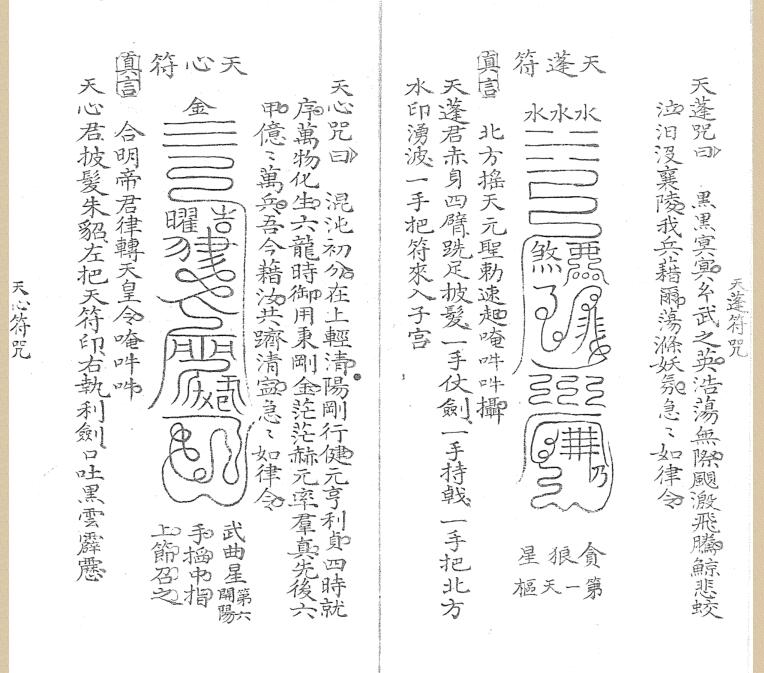 天蓬符咒
天蓬咒曰　黑黑冥冥玄武之英浩蕩無際颶激飛騰鯨悲蛟
泣汨沒襄陵我兵藉爾蕩滌妖氛急〻如律令
天蓬符
水水水
惡
煞
乃
貪狼星
第一天樞
真言　北方搖天元聖勅速起唵吽吽攝
天蓬君赤身四臂跣足披髮一手仗劍一手持戟一手把北方
水印湧波一手把符來入子宫
天心咒曰　混沌初分在上輕清陽剛行健元亨利貞四時就
序萬物化生六龍時御用東剛金茫茫赫元率羣真先後六
甲億〻萬兵吾今藉汝共躋清寍急〻如律令
天心符
金
吉
曜
武曲星
第六開陽
手搯中指
上節召之
真言　合明帝君律轉天皇令唵吽吽
天心君披髮朱貂左把天符印右執利劍口吐黑雲霹靂
天心符咒